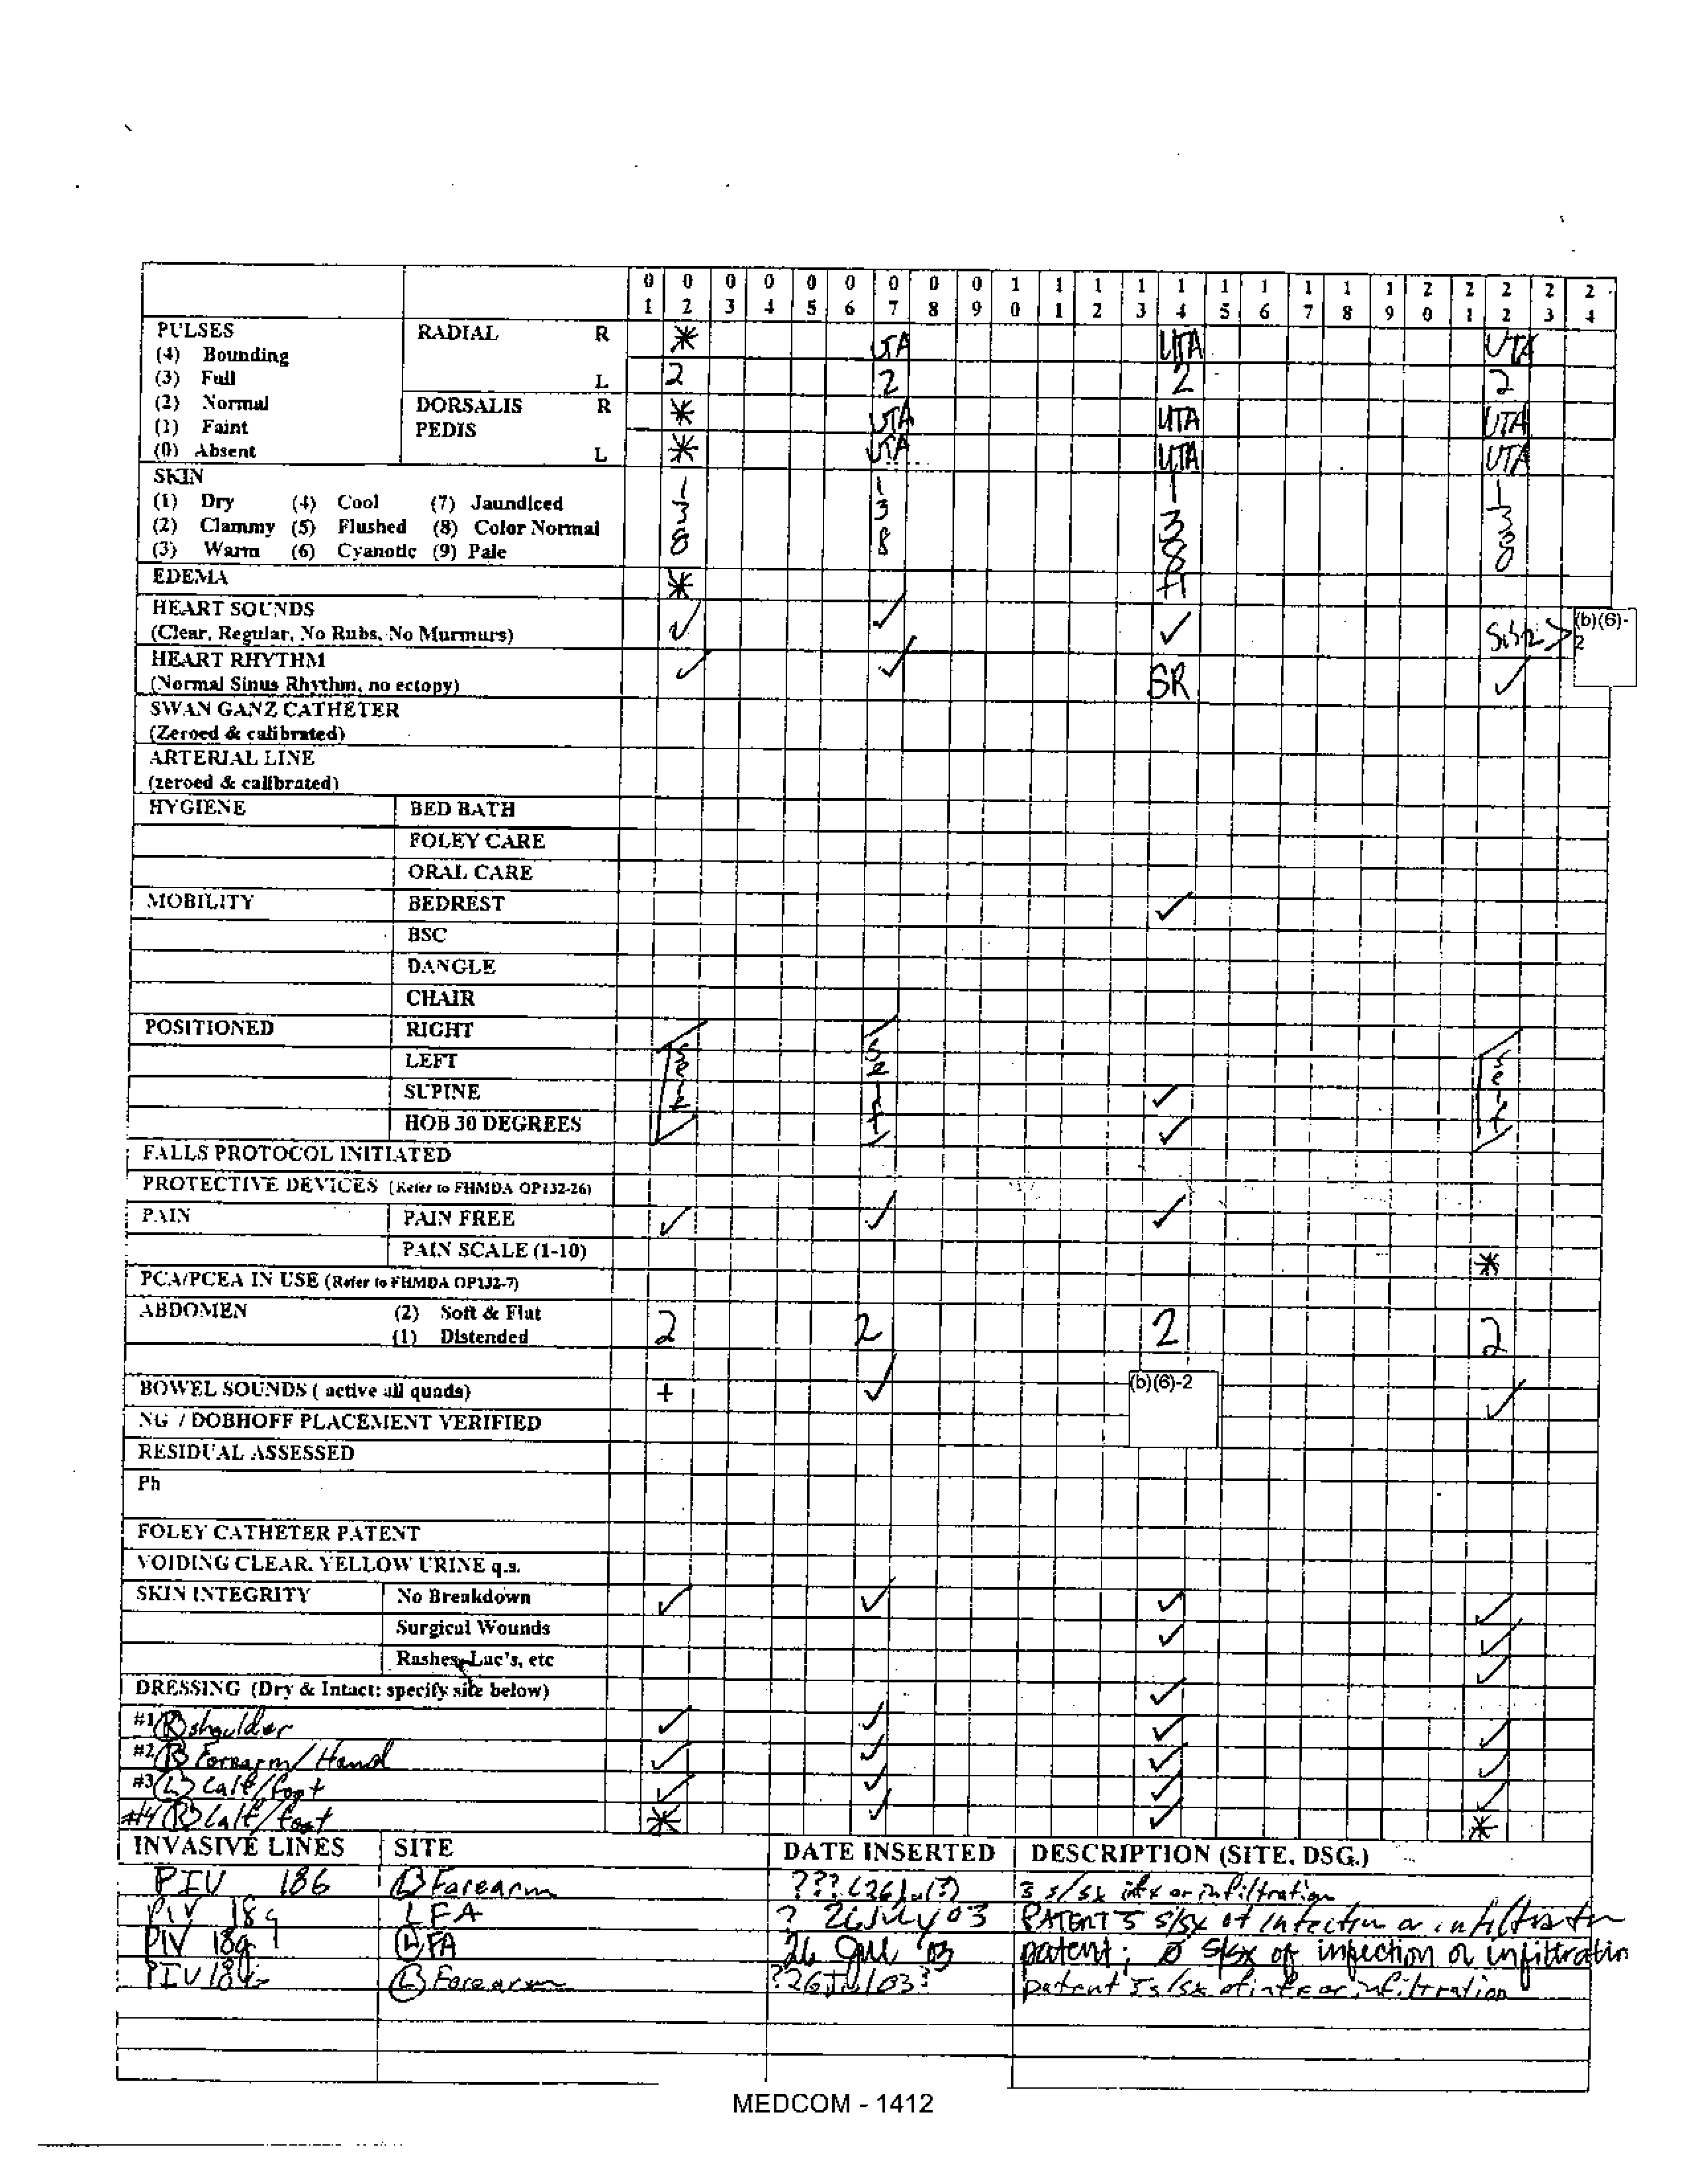 0 0 0 0 0 0 0 0 0 1 1 1 1 1 1 1 1 1 1 2 2 2 2 2
1 2 3 4 5 6 7 8 9 0 1 2 3 4 5 6 7 8 9 0 1 2 3 4
PULSES RADIAL R * UTA UTA UTA
(4) Bounding
(3) Full L 2 2 2 2
(2) Normal DORSALIS R * UTA UTA UTA
(1) Faint PEDIS
(0) Absent L * UTA UTA UTA
SKIN 1 1 1 1
(1) Dry (4) Cool (7) Jaundiced
(2) Clammy (5) Flushed (8) Color Normal 3 3 3 3
(3) Warm (6) Cyanotic (9) Pale 8 8 8 8
EDEMA * +1
HEART SOUNDS
(Clear, Regular, No Rubs, No Murmurs) ✓ ✓ ✓ S1S2 > (b)(6)-2
HEART RHYTHM
(Normal Sinus Rhythm, no ectopy) ✓ ✓ SR ✓
SWAN GANZ CATHETER
(Zeroed & calibrated)
ARTERIAL LINE
(zeroed & calibrated)
HYGIENE BED BATH
FOLEY CARE
ORAL CARE
MOBILITY BEDREST ✓
BSC
DANGLE
CHAIR
POSITIONED RIGHT
LEFT self self self
SUPINE ✓
HOB 30 DEGREES ✓
FALLS PROTOCOL INITIATED
PROTECTIVE DEVICES (Refer to FHMDA OP132-26)
PAIN PAIN FREE ✓ ✓ ✓
PAIN SCALE (1-10) *
PCA/PCEA IN USE (Refer to FHMDA OP132-7)
ABDOMEN (2) Soft & Flat
(1) Distended 2 2 2 2
BOWEL SOUNDS ( active all quads) + ✓ (b)(6)-2 ✓
NG / DOBHOFF PLACEMENT VERIFIED
RESIDUAL ASSESSED
Ph
FOLEY CATHETER PATENT
VOIDING CLEAR, YELLOW URINE q.s.
SKIN INTEGRITY No Breakdown ✓ ✓ ✓ ✓
Surgical Wounds ✓ ✓
Rashes, Lac's, etc ✓
DRESSING (Dry & Intact: specify site below) ✓
#1 (R) shoulder ✓ ✓ ✓ ✓
#2 (R) Forearm/Hand ✓ ✓ ✓ ✓
#3 (L) Calf/foot ✓ ✓ ✓ ✓
#4 (R) Calf/foot * ✓ ✓ *
INVASIVE LINES SITE DATE INSERTED DESCRIPTION (SITE, DSG.)
PIV 18G (L) Forearm ??? (26 Jul?) s/sx infx or infiltration
PIV 18g LFA ? 26 July 03 PATENT s/sx of infection or infiltration
PIV 18g (L) FA 26 Jul 03 patent; ø s/sx of infection or infiltration
PIV 18G (L) Forearm ?26Jul03? patent s/sx of infx or infiltration
MEDCOM - 1412